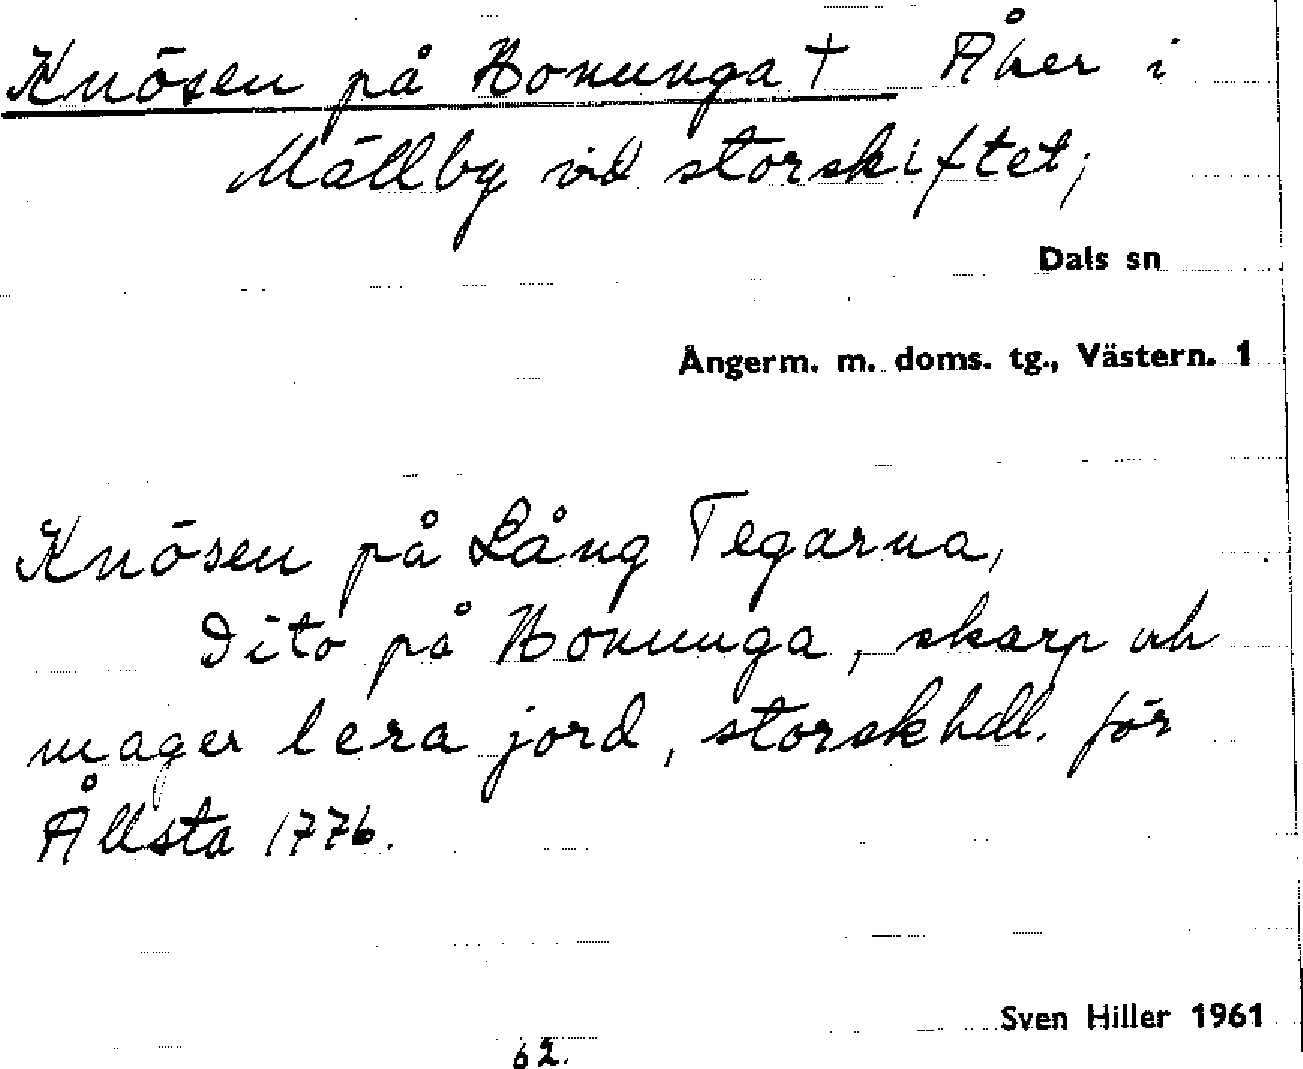 Knösen på Honunga † Åker i
Mällby vid storskiftet;
Dals sn
Ångerm. m. doms. tg., Västern. 1
Knösen på Lång Tegarna,
Dito på Honunga, skarp och
mager lera jord, storskhdl. för
Ållsta 1776.
Sven Hiller 1961
62.